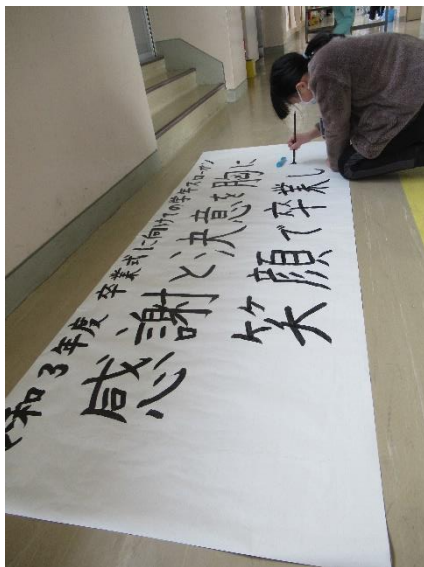 令和3年度 卒業式に向けての学年スローガン
感謝と決意を胸に
笑顔で卒業し